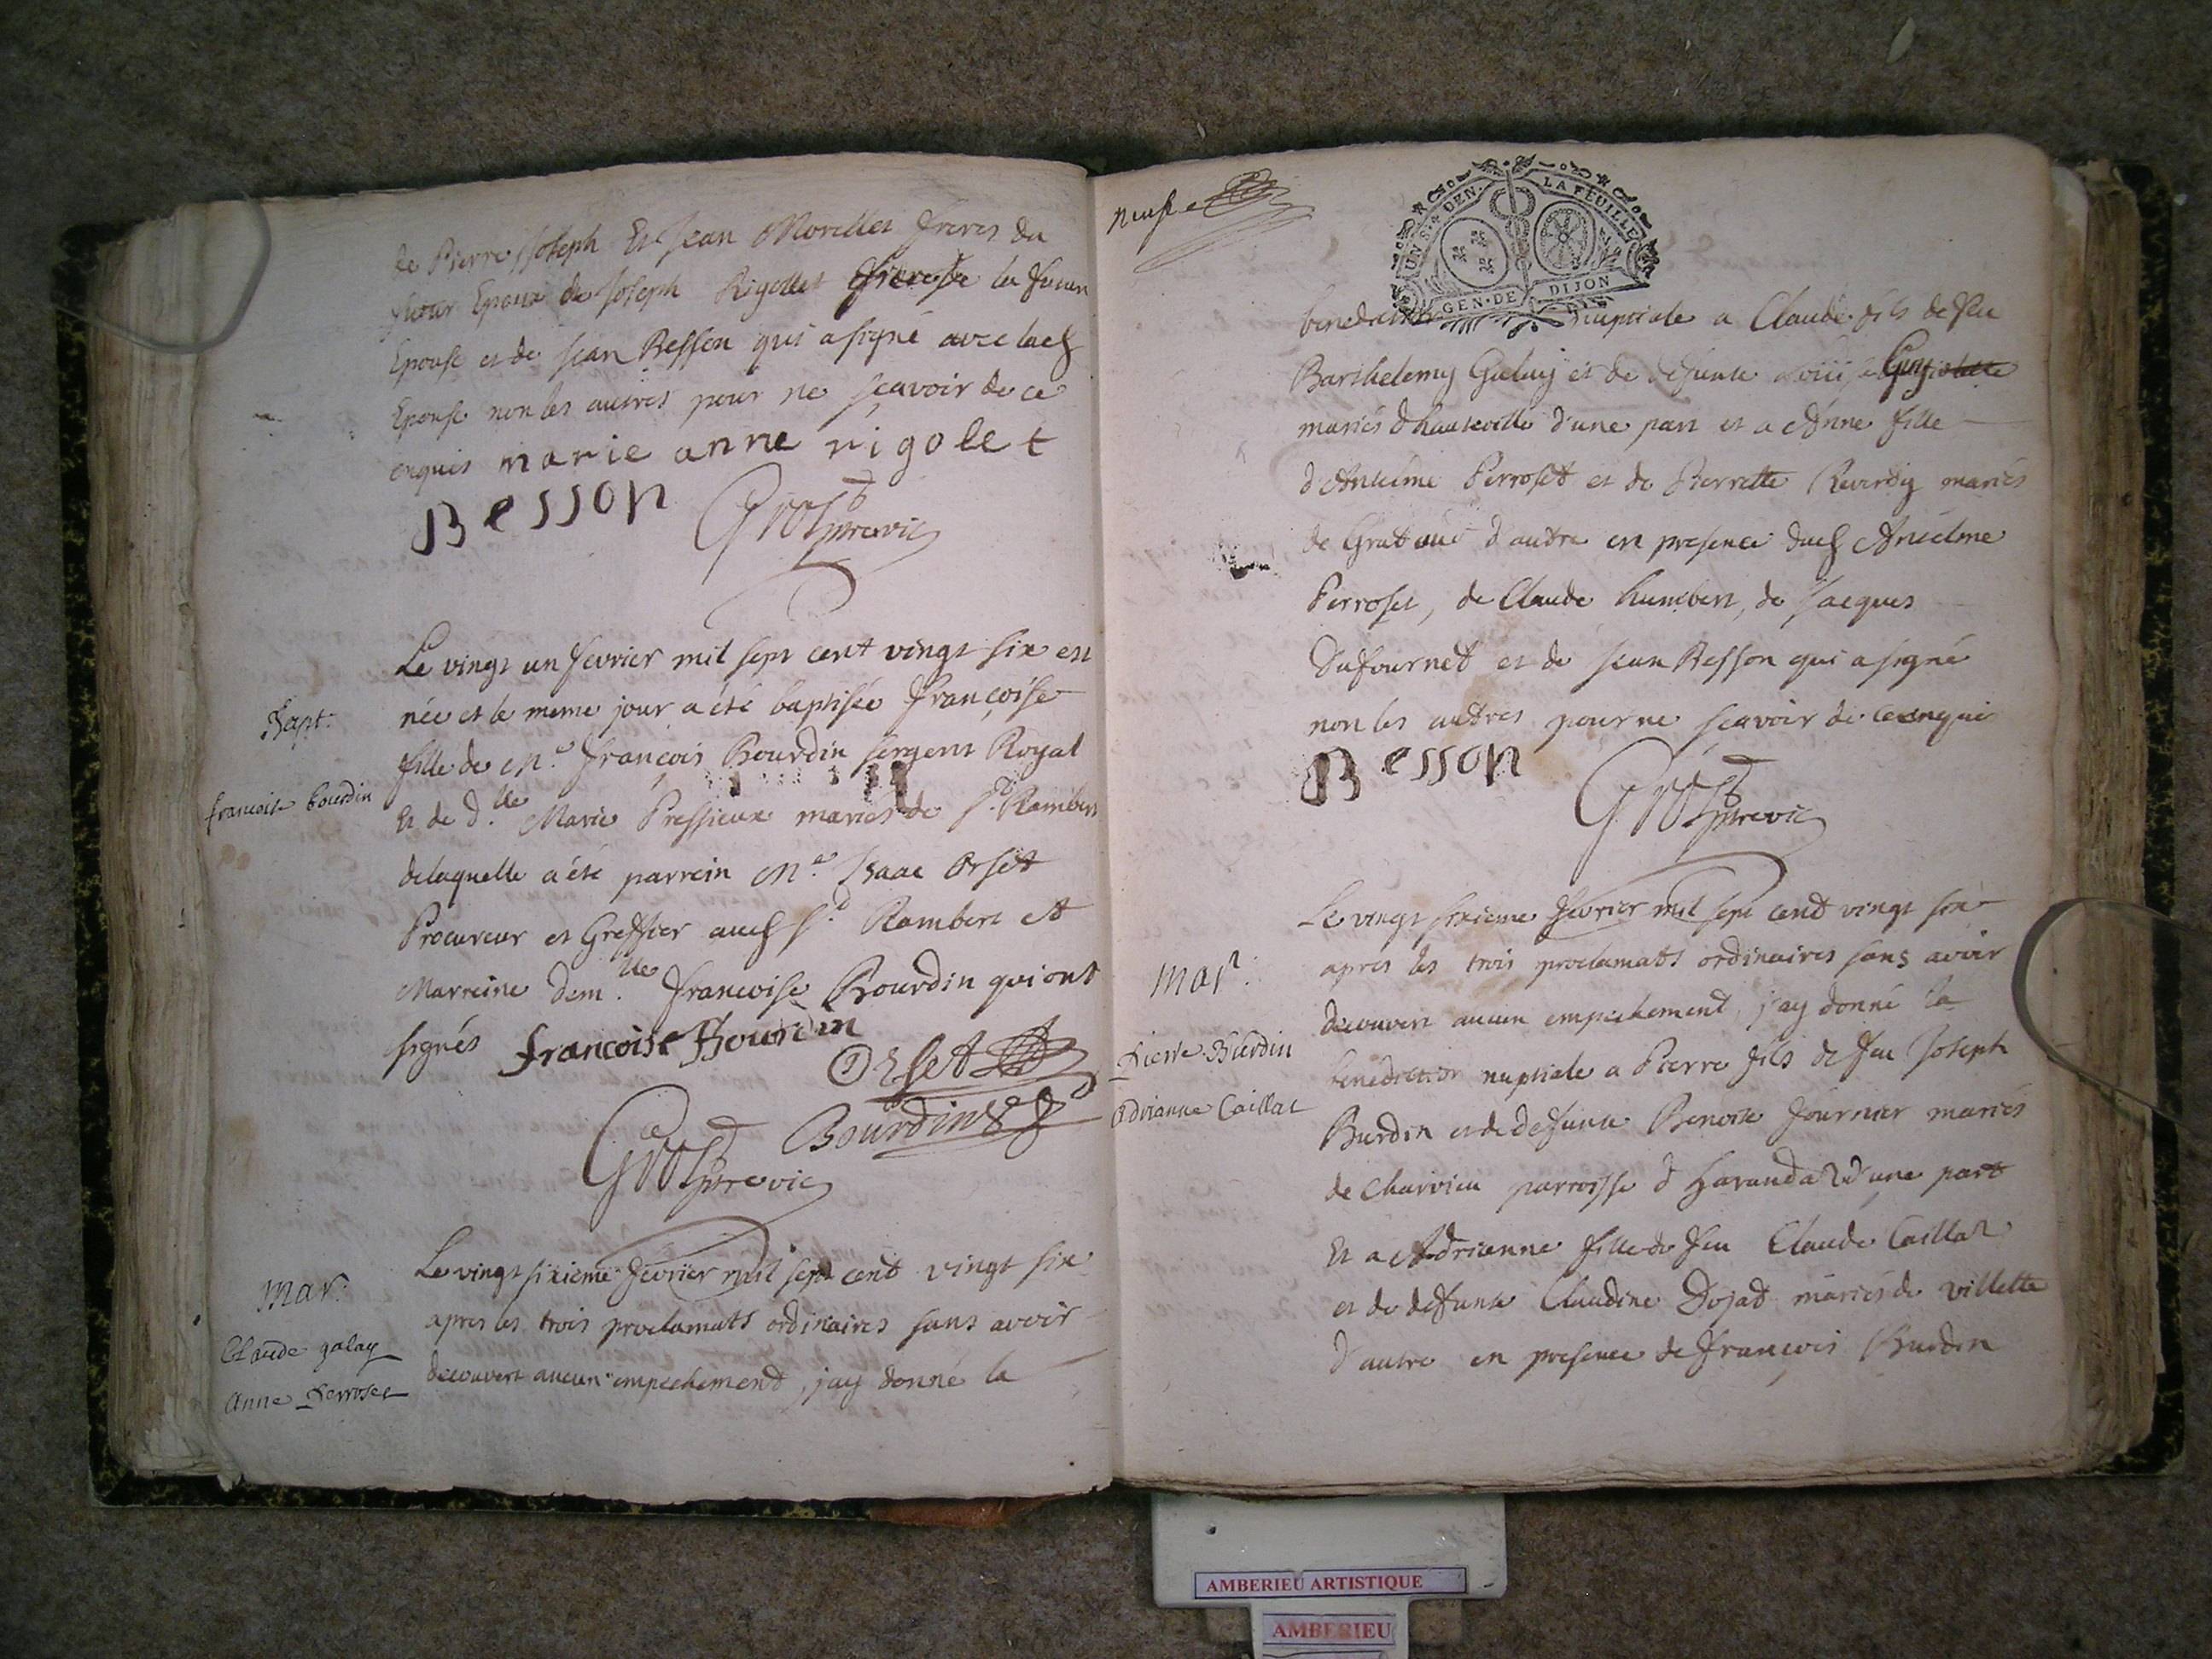 de Pierre Joseph Et Jean Morellet freres du
futur Epoux de Joseph Rigollet frere de la future
Epouse et de Jean Besson qui a signé avec lad
Epouse non les autres pour ne scavoir de ce
enquis marie anne rigolet
Besson
Gros vic
Le vingt un fevrier mil sept cent vingt six est
née et le meme jour a été baptisée françoise
Bapt:
francoise bourdin
fille de Me françois Bourdin sergent Royal
Et de d.lle Marie Pressieux mariés de St Rambert
delaquelle a été parrein Me Isaac Orset
Procureur et Greffier aud St Rambert et
Marreine dem.lle francoise Bourdin qui ont
signés francoise Bourdin
Orset
Bourdin
Gros vic
Mar:
Claude galay
Anne Perroset
Le vingt sixieme fevrier mil sept cent vingt six
apres les trois proclamats ordinaires sans avoir
decouvert aucun empechement, j'ay donné la
neuf
UN S. 4 DEN. LA FEUILLE
GEN. DE DIJON
benediction nuptiale a Claude fils de feu
Barthelemy Galay et de defunte
mariés d'hauteville d'une part et a Anne fille
d'Antelme Perroset et de Pierrette Reverdy mariés
de d'autre en presence dud Antelme
Perroset, de Claude humbert, de Jacques
Dufournet et de Jean Besson qui a signé
non les autres pour ne scavoir de ce enquis
Besson
Gros vic
Mar:
Pierre Burdin
Adrianne Caillat
Le vingt sixieme fevrier mil sept cent vingt six
apres les trois proclamats ordinaires sans avoir
decouvert aucun empechement, j'ay donné la
benediction nuptiale a Pierre fils de feu Joseph
Burdin et de defunte Benoite fournier mariés
de Charvieu parroisse d'haranda d'une part
Et a Adrienne fille de feu Claude Caillat
et de defunte Claudine Dojat mariés de villette
d'autre en presence de françois Burdin
AMBERIEU ARTISTIQUE
AMBERIEU